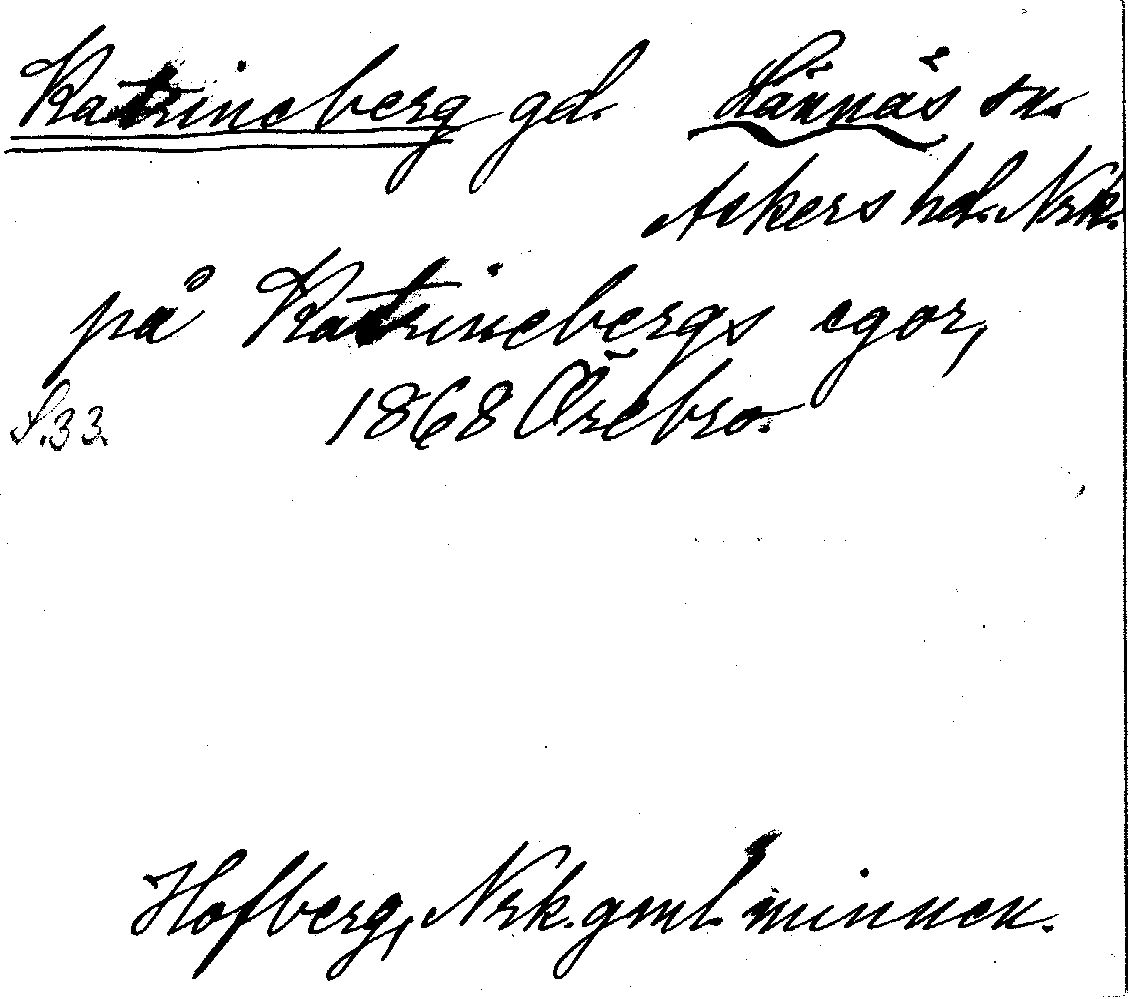 Katrineberg gd. Lännäs sn.
Askers hd. Nrk.
på Katrinebergs egor,
S.33. 1868 Örebro.
Hofberg, Nrk. gml. minnen.